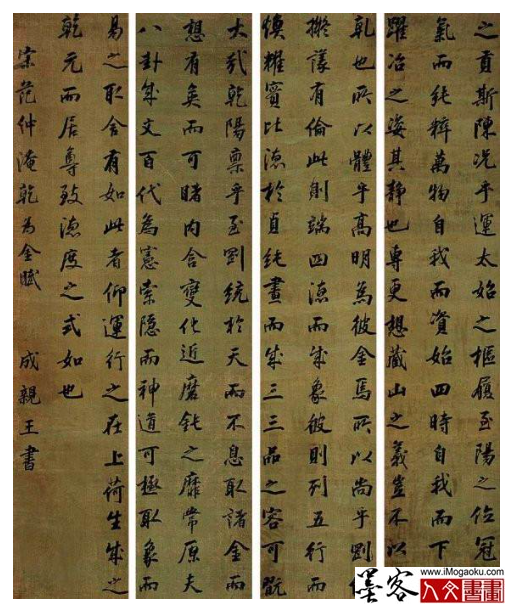 之貢斯陳況乎運太始之樞履至陽之位冠
氣而純粹萬物自我而資始四時自我而下
躍冶之姿其静也專更想藏山之義豈不以
乾也所以體乎高明為彼金焉所以尚乎剛
擬議有倫此則端四德而成象彼則列五行而
耀實比德於貞純畫而成三三品之容可既
大哉乾陽稟乎至剛統於天而不息取諸金而
想有爻而可睹内含變化近磨鈍之靡常原夫
八卦成文百代為憲索隱而神道可極取象而
易之取舍有如此者仰運行之在上荷生成之
乾元而居尊致德度之式如也
宋范仲淹乾為金賦 成親王書
www.iMogaoku.com
墨客
人文書畫